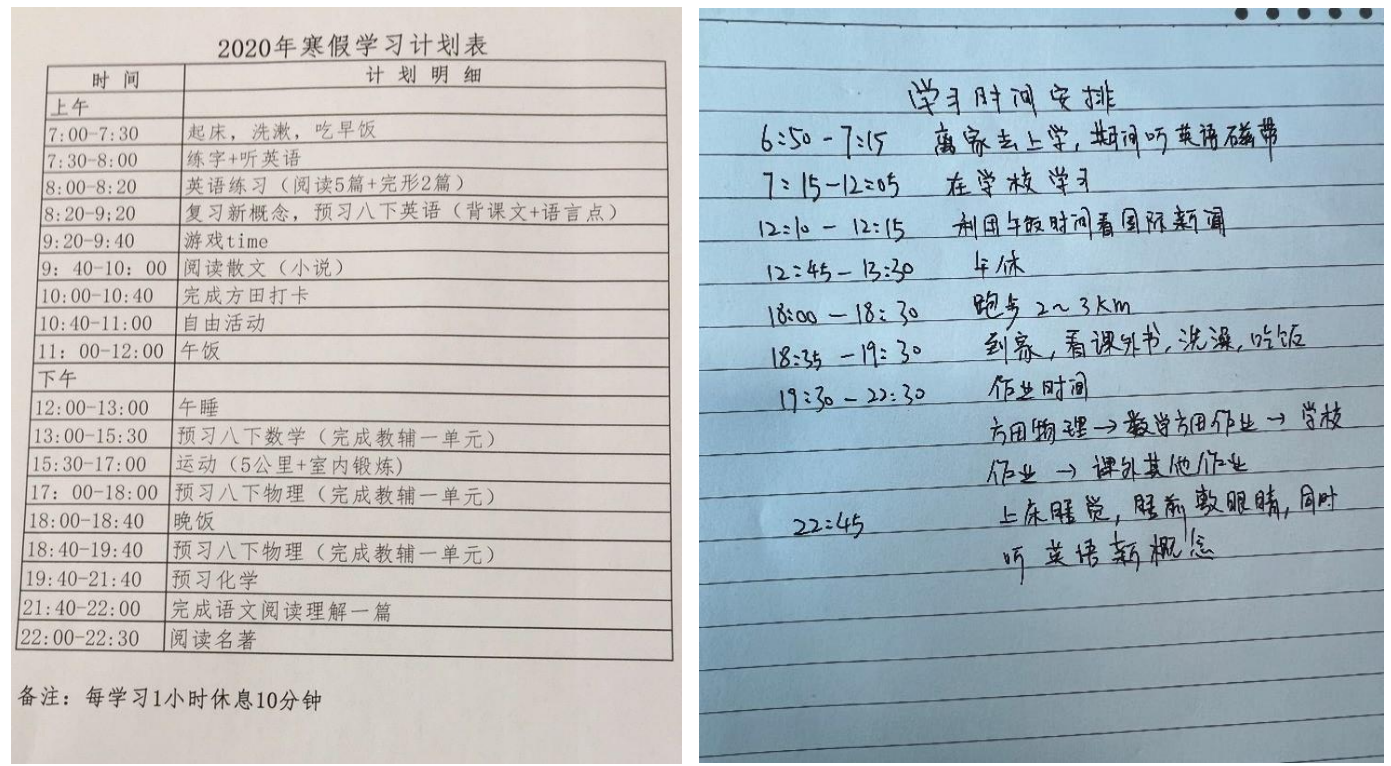 2020年寒假学习计划表
时 间 计 划 明 细
上午
7:00-7:30 起床，洗漱，吃早饭
7:30-8:00 练字+听英语
8:00-8:20 英语练习（阅读5篇+完形2篇）
8:20-9;20 复习新概念，预习八下英语（背课文+语言点）
9:20-9:40 游戏time
9：40-10：00 阅读散文（小说）
10:00-10:40 完成方田打卡
10:40-11:00 自由活动
11：00-12:00 午饭
下午
12:00-13:00 午睡
13:00-15:30 预习八下数学（完成教辅一单元）
15:30-17:00 运动（5公里+室内锻炼)
17：00-18:00 预习八下物理（完成教辅一单元）
18:00-18:40 晚饭
18:40-19:40 预习八下物理（完成教辅一单元）
19:40-21:40 预习化学
21:40-22:00 完成语文阅读理解一篇
22:00-22:30 阅读名著
备注：每学习1小时休息10分钟
学习时间安排
6:50-7:15 离家去上学，期间听英语磁带
7:15-12:05 在学校学习
12:10-12:15 利用午饭时间看国际新闻
12:45-13:30 午休
18:00-18:30 跑步2~3km
18:35-19:30 到家，看课外书，洗澡，吃饭
19:30-22:30 作业时间
方田物理→数学方田作业→学校
作业→课外其他作业
22:45 上床睡觉，睡前敷眼睛，同时
听英语新概念